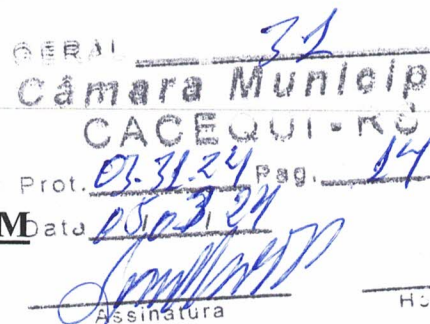 GERAL 31
Câmara Municip
CACEQUI - RS
Prot. 03.31.24 Pag. 14
M Data 05/03/24
Assinatura